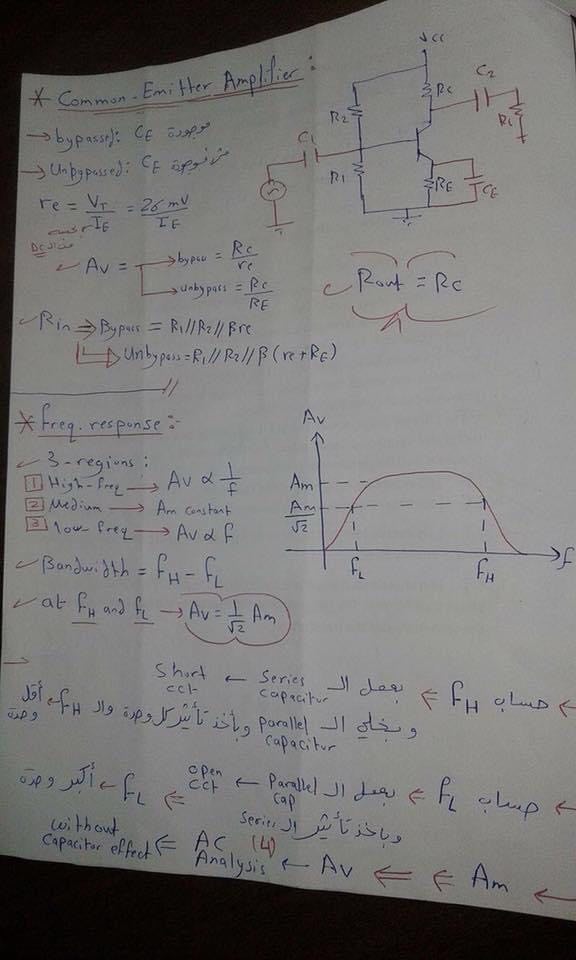 * Common-Emitter Amplifier:
→ bypassed: CE موجودة
→ Unbypassed: CE مش موجودة
re = VT/IE = 26 mV/IE
Av = → bypass = RC/re
→ unbypass = RC/RE
Rin ⇒ Bypass = R1//R2//βre
Unbypass = R1//R2//β(re+RE)
VCC
RC
C2
RL
R2
C1
R1
RE
CE
Rout = RC
* freq. response:-
3-regions:
1 High-freq → Av ∝ 1/f
2 Medium → Am constant
3 low-freq → Av ∝ f
Bandwidth = fH - fL
at fH and fL → Av = 1/√2 Am
Av
Am
Am/√2
fL
fH
f
حساب fH ⇐ بعمل الـ Series capacitor ← Short cct
وبخلي الـ parallel capacitor وبأخذ تأثير كل وحدة والـ fH ← أقل وحدة
حساب fL ⇐ بعمل الـ Parallel cap ← open cct
وباخذ تأثير الـ series ⇐ fL ← أكبر وحدة
Am ⇐ Av ← AC Analysis (4) ⇐ without capacitor effect